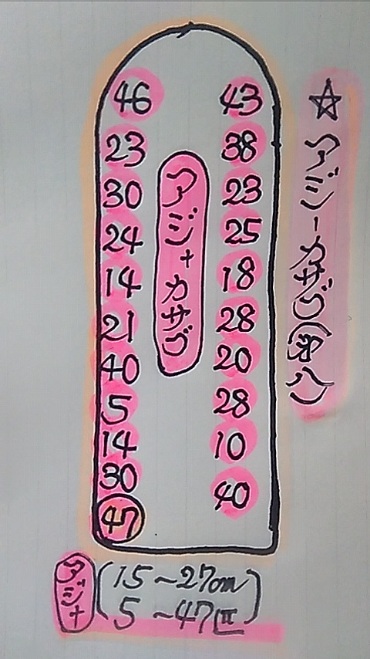 ☆アジーカサゴ
46 43
23 38
30 23
24 25
14 18
21 28
40 20
5 28
14 10
30 40
47
アジ+カサゴ
アジ+
(15~27cm
5~47匹)